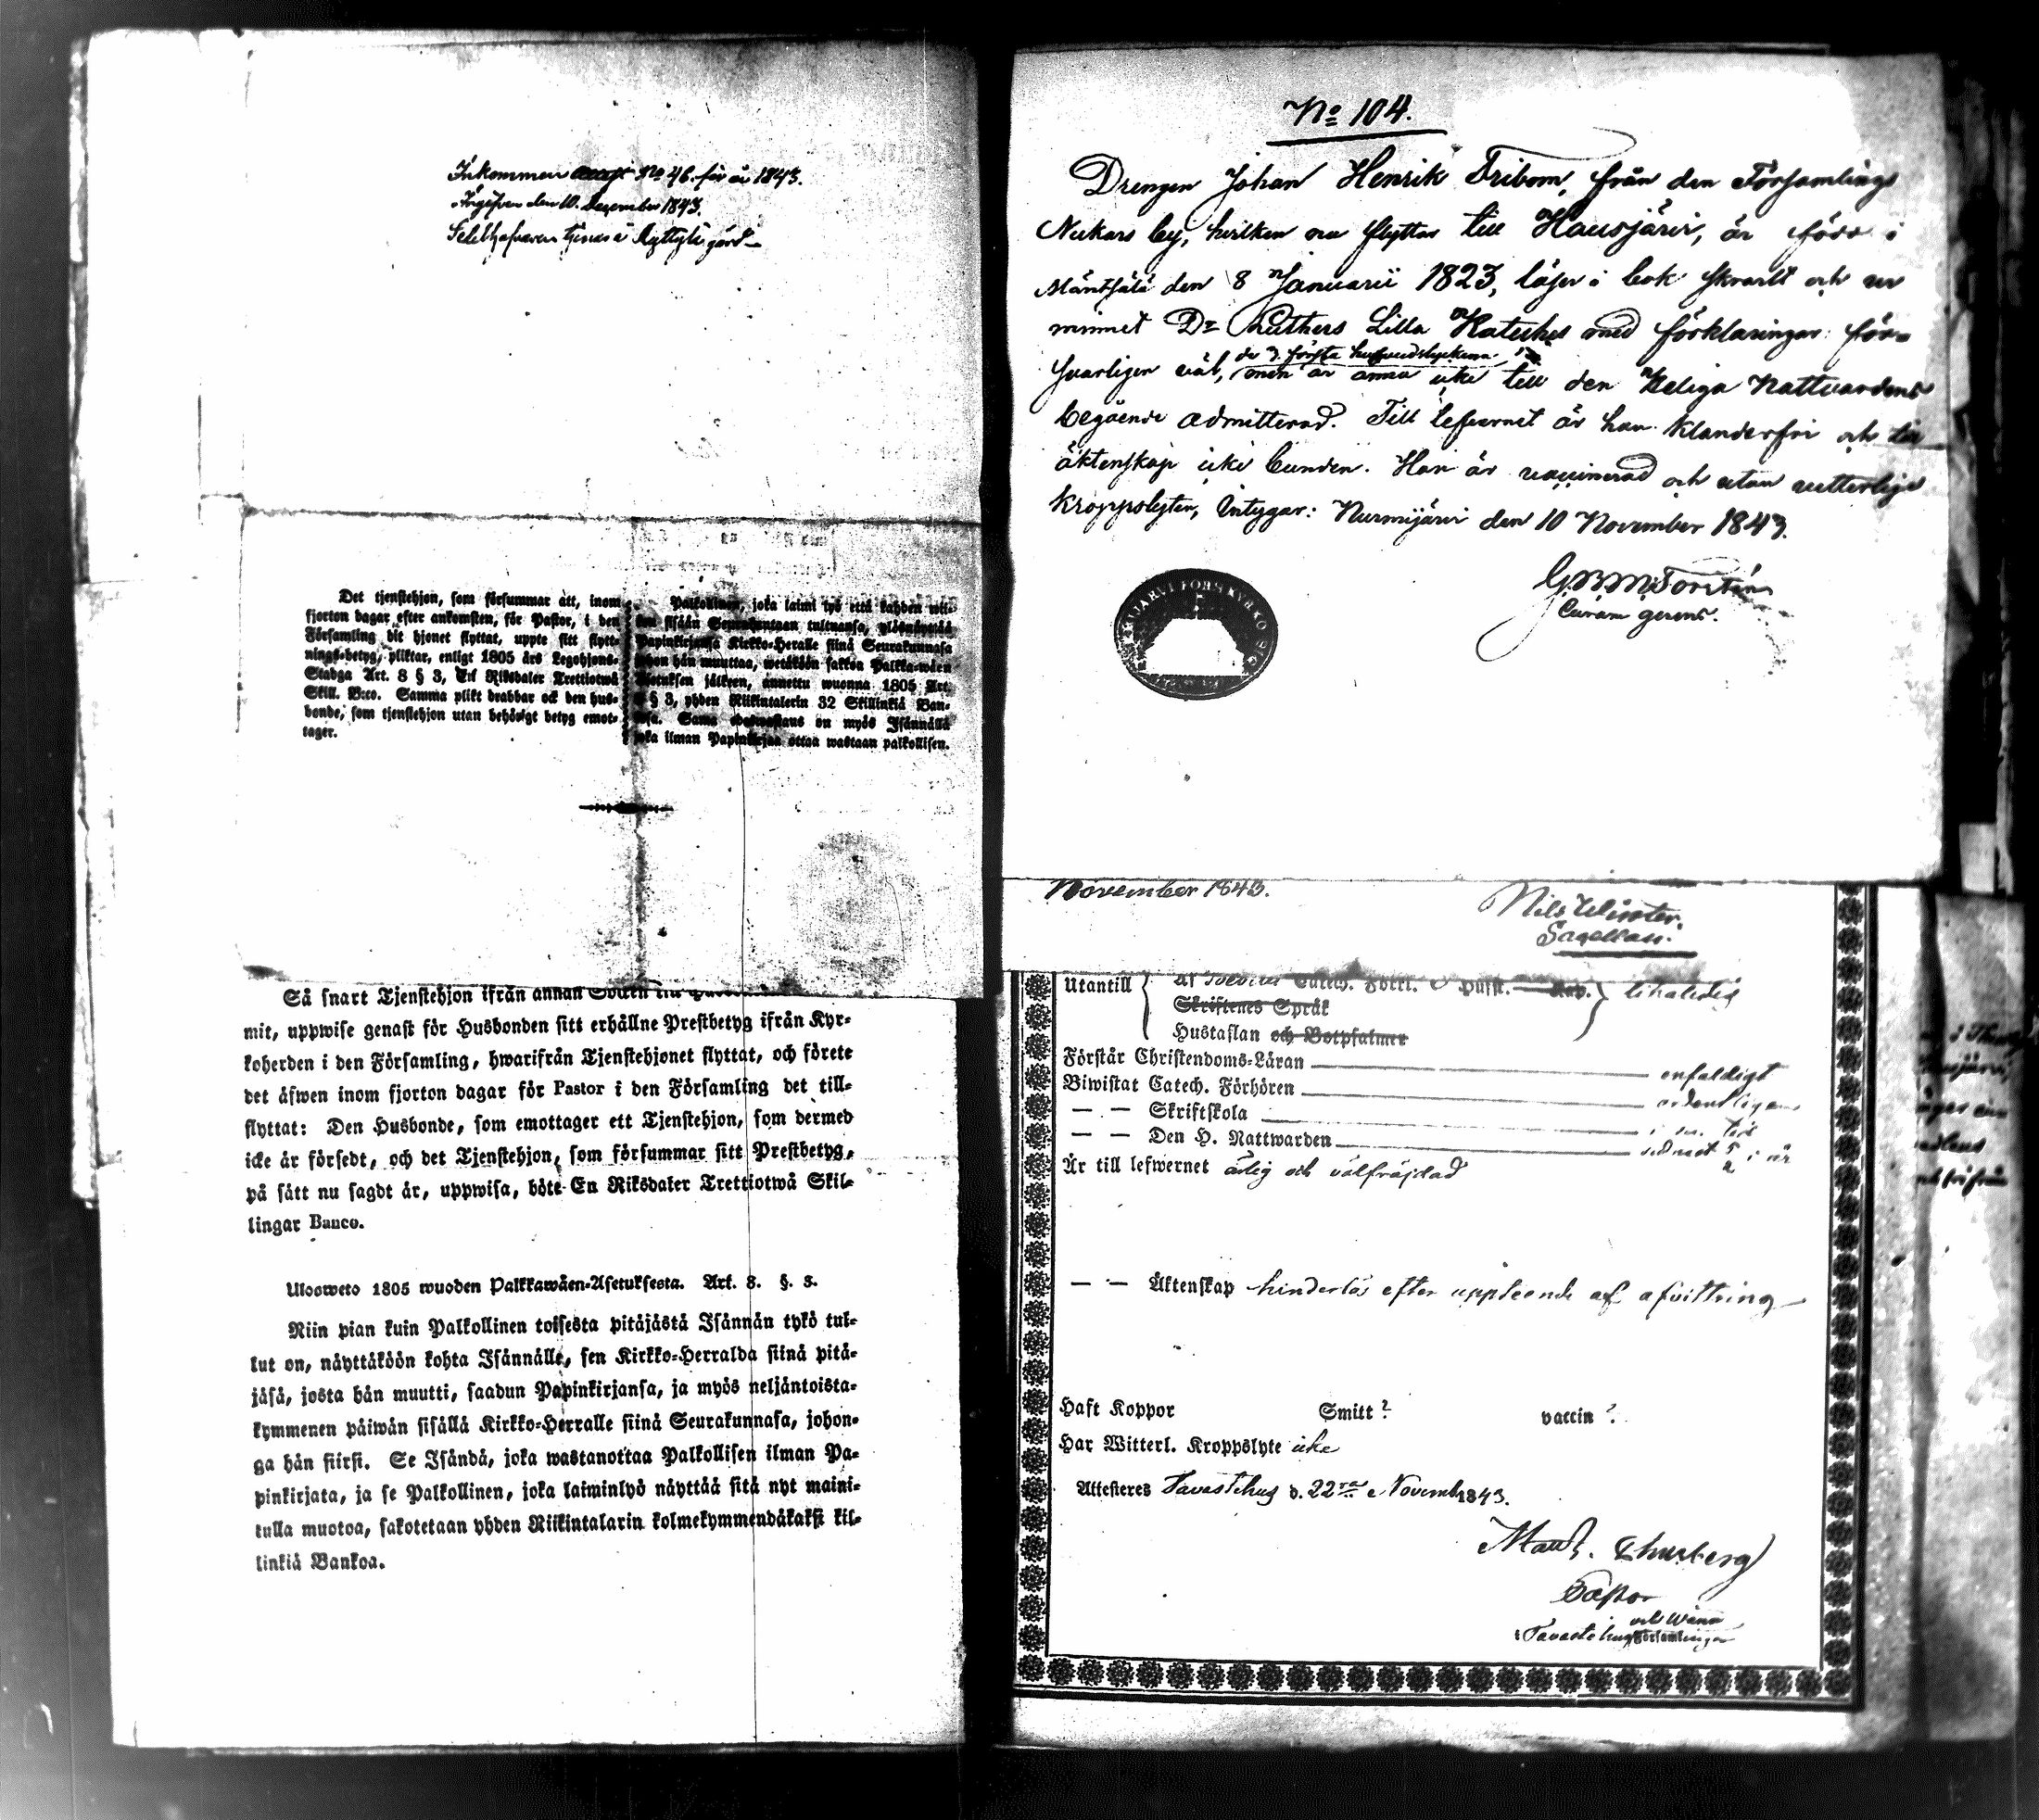 Inkommen No 46 för år 1843.
Ingifven den 10. December 1843.
gård
Det tjenstehjon, som försummar att, inom
fjorton dagar efter ankomsten, för Pastor, i den
Församling dit hjonet flyttat, uppte sitt flytt-
nings-betyg, pliktar, enligt 1805 års Legohjons-
Stadga Art. 8 § 3, En Riksdaler Trettiotwå
Skill. B:co. Samma plikt drabbar ock den hus-
bonde, som tjenstehjon utan behörigt betyg emot-
tager.
Palkollinen, joka laimi lyö että kahden wii-
kon sisään Seurakuntaan tultuansa, ylösnäyttää
Papinkirjansa Kirkko-Heralle siinä Seurakunnasa
johon hän muuttaa, wetäköön sakkoa Palkka-wäen
Asetuksen jälkeen, annettu wuonna 1805 Art.
8 § 3, yhden Riikintalerin 32 Skillinkiä Ban-
kosa. Sama on myös Isännällä
joka ilman Papinkirjaa ottaa wastaan palkollisen.
Så snart Tjenstehjon ifrån annan Socken till
mit, uppwise genast för Husbonden sitt erhållne Prestbetyg ifrån Kyr-
koherden i den Församling, hwarifrån Tjenstehjonet flyttat, och förete
det äfwen inom fjorton dagar för Pastor i den Församling det till-
flyttat: Den Husbonde, som emottager ett Tjenstehjon, som dermed
icke är försedt, och det Tjenstehjon, som försummar sitt Prestbetyg,
på sätt nu sagdt är, uppwisa, böte En Riksdaler Trettiotwå Skil-
lingar Banco.
Ulosweto 1805 wuoden Palkkawäen-Asetuksesta. Art. 8. §. 3.
Niin pian kuin Palkollinen toisesta pitäjästä Isännän tykö tul-
lut on, näyttäköön kohta Isännälle, sen Kirkko-Herralda siinä pitä-
jäsä, josta hän muutti, saadun Papinkirjansa, ja myös neljäntoista-
kymmenen päiwän sisällä Kirkko-Herralle siinä Seurakunnasa, johon-
ga hän siirsi. Se Isändä, joka wastanottaa Palkollisen ilman Pa-
pinkirjata, ja se Palkollinen, joka laiminlyö näyttää sitä nyt maini-
tulla muotoa, sakotetaan yhden Riikintalarin kolmekymmendäkaksi kil-
linkiä Bankoa.
No 104.
Drengen Johan Henrik Fribom, från den Församlings
Nukars by, hvilken nu flyttar till Hausjärvi, är född i
Mäntsälä den 8 Januarii 1823, läser i bok svarlt och ur
minnet Dr Luthers Lilla Kateches med förklaringar för-
de 3. första hufvudstyckena
svarligen väl, men är ännu icke till den Heliga Nattvardens
begående admitterad. Till lefvernet är han klanderfri och till
äktenskap icke bunden. Han är vaccinerad och utan vetterliga
kroppslyten, intygar: Nurmijärvi den 10 November 1843.
Curam gerens.
November 1843.
Nils
Sacellan.
Utantill Catech. Förkl.
Skriftenes Språk
Hustaflan och Botpsalmer
Förstår Christendoms-Läran enfaldigt
Biwistat Catech. Förhören ordentligen
— — Skriftskola i sin tid
— — Den H. Nattwarden sednast i år
Är till lefwernet ärlig och välfräjdad
— — Äktenskap hinderlös efter uppteende af afvittring
Haft Koppor Smitt? vaccin?
Har Witterl. Kroppslyte icke
Attesteres Tavastehus d. 22 Novemb 1843.
Pastor